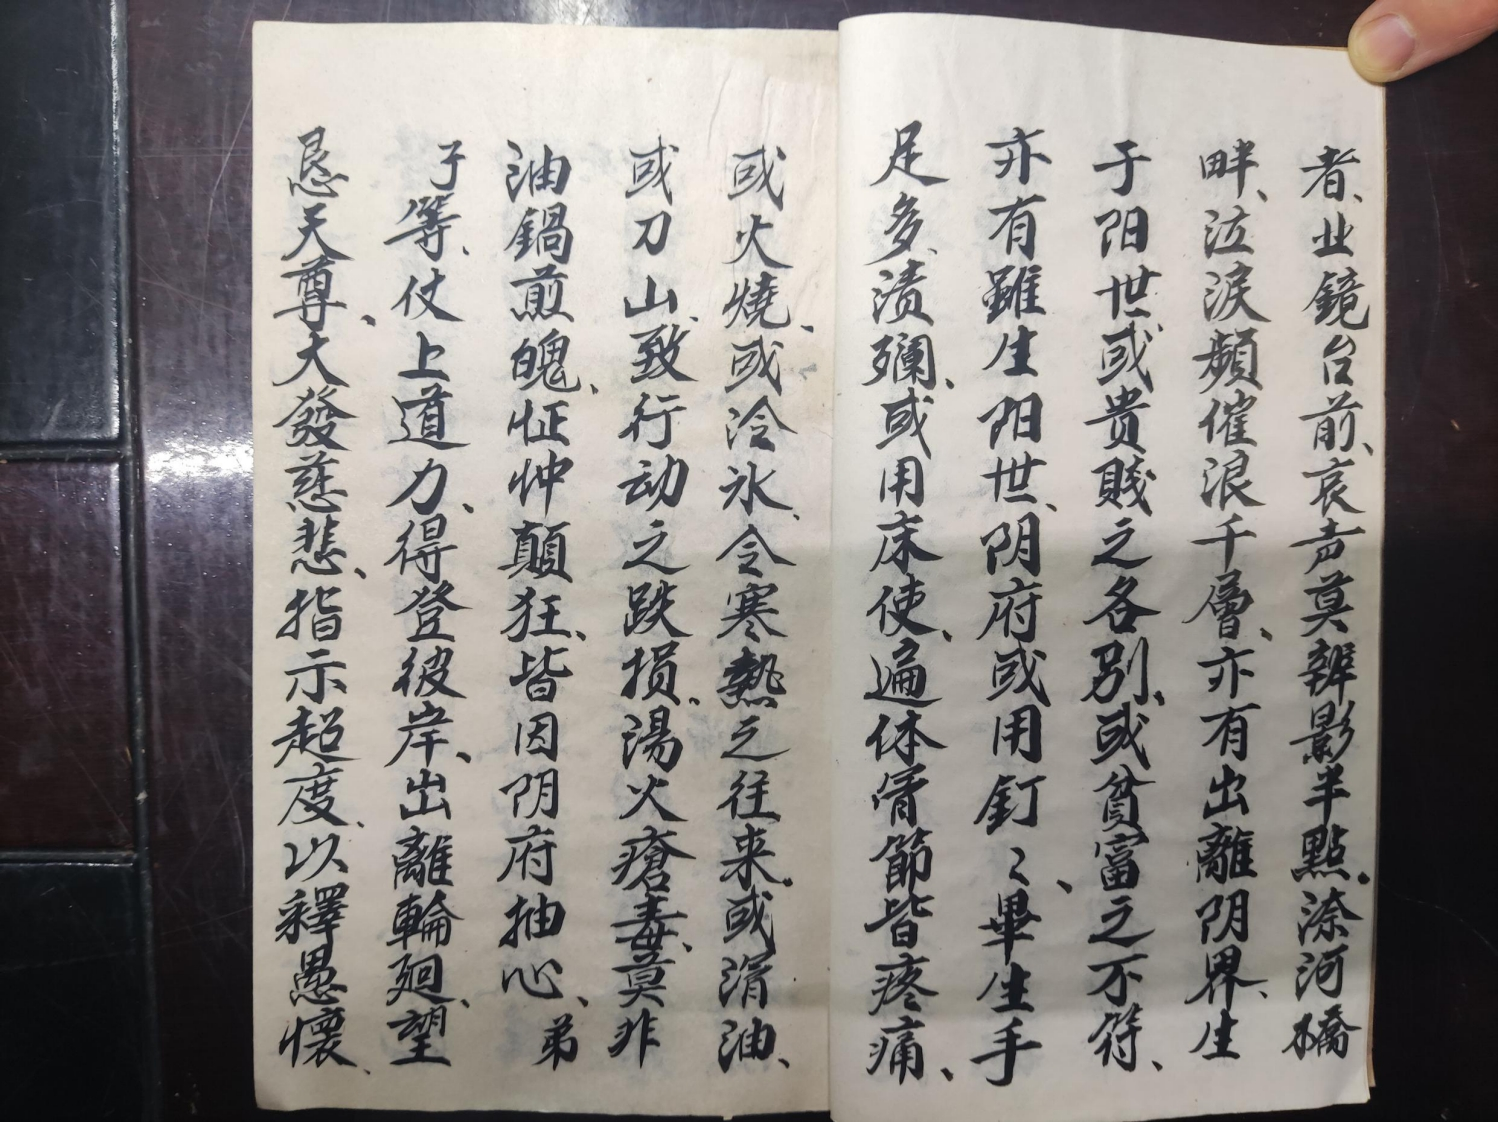 者、业鏡台前、哀声莫辨影半點。渿河橋
畔、泣淚頻催浪千層、亦有出離阴界、生
于阳世、或贵賤之各别、或貧富之不符、
亦有雖生阳世、阴府或用釘〻、畢生手
足多、潰斓、或用床使、遍体骨節皆疼痛、
或火燒、或冷氷、令寒熱之往来。或滑油、
或刀山、致行动之跌损、湯火瘡毒、莫非
油鍋煎魄、怔忡顛狂、皆因阴府抽心、弟
子等、仗上道力、得登彼岸、出離輪廻、望
恳天尊、大發慈悲、指示超度、以釋愚懷、